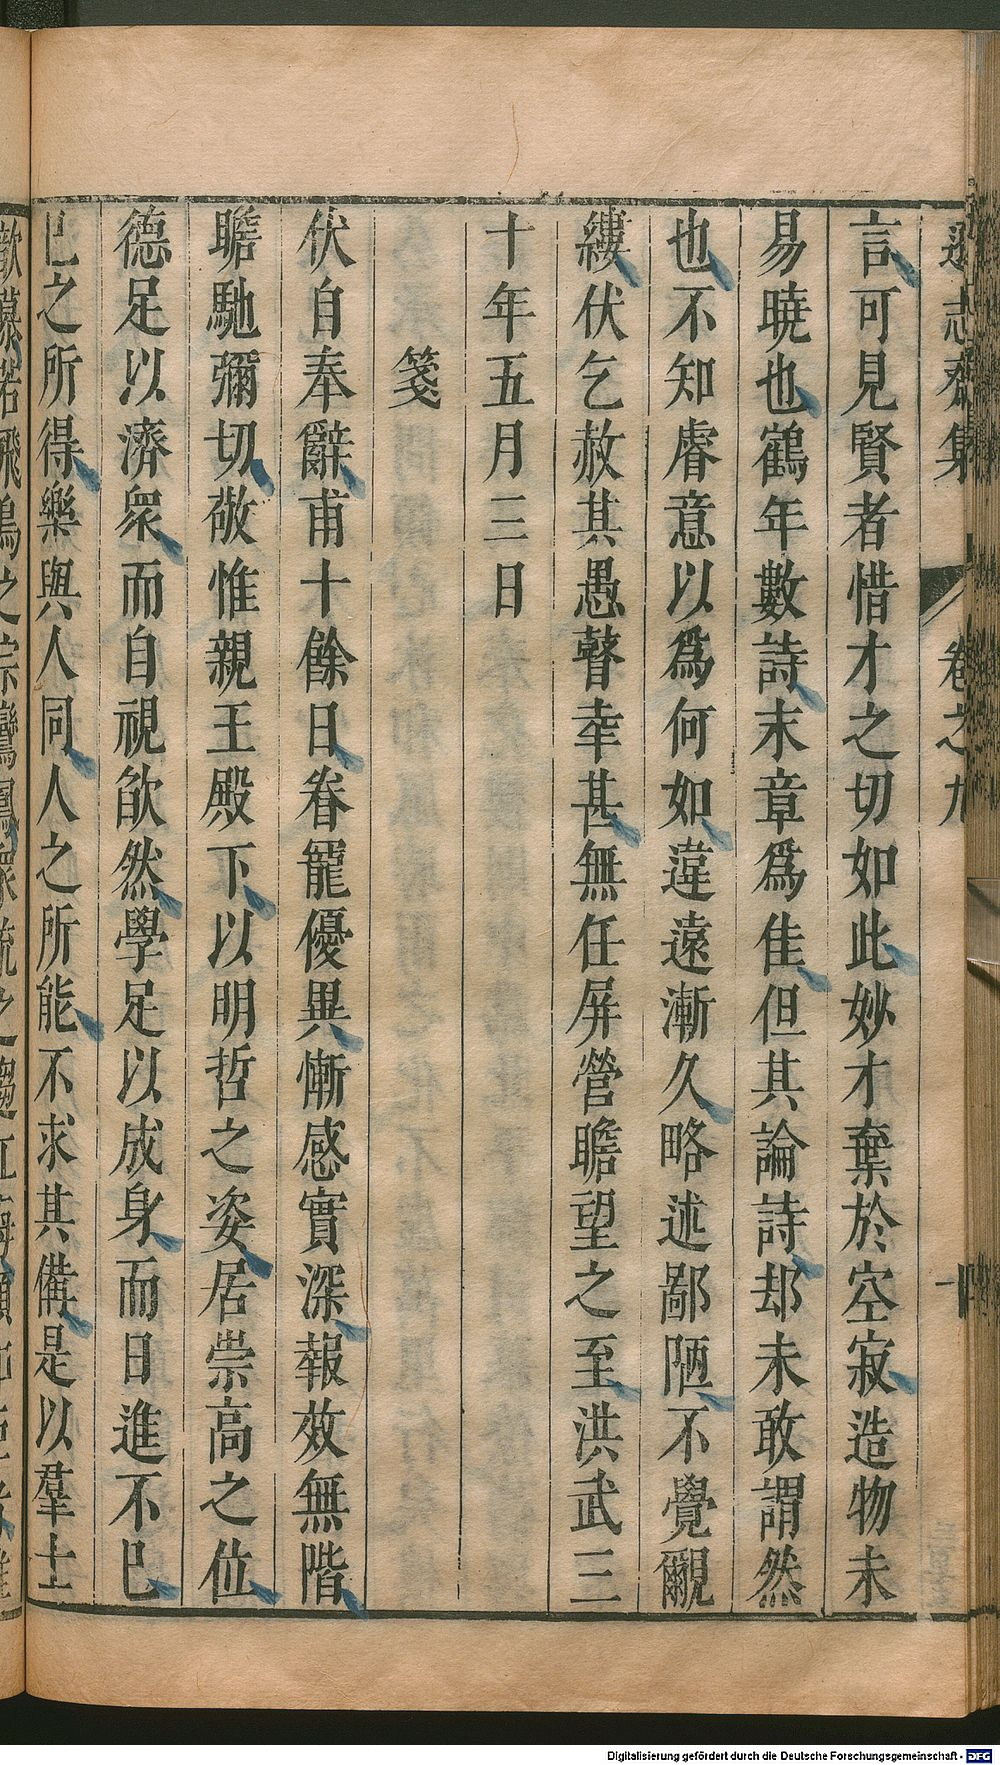 遜志齋集 卷之九
言可見賢者惜才之切如此妙才棄於空寂造物未
易曉也鶴年數詩末章爲佳但其論詩却未敢謂然
也不知睿意以爲何如違遠漸久略述鄙陋不覺覼
縷伏乞赦其愚瞽幸甚無任屏營瞻望之至洪武三
十年五月三日
箋
伏自奉辭甫十餘日眷寵優異慚感實深報效無階
瞻馳彌切敬惟親王殿下以明哲之姿居崇高之位
德足以濟衆而自視欿然學足以成身而日進不已
已之所得樂與人同人之所能不求其備是以羣士
Digitalisierung gefördert durch die Deutsche Forschungsgemeinschaft - DFG